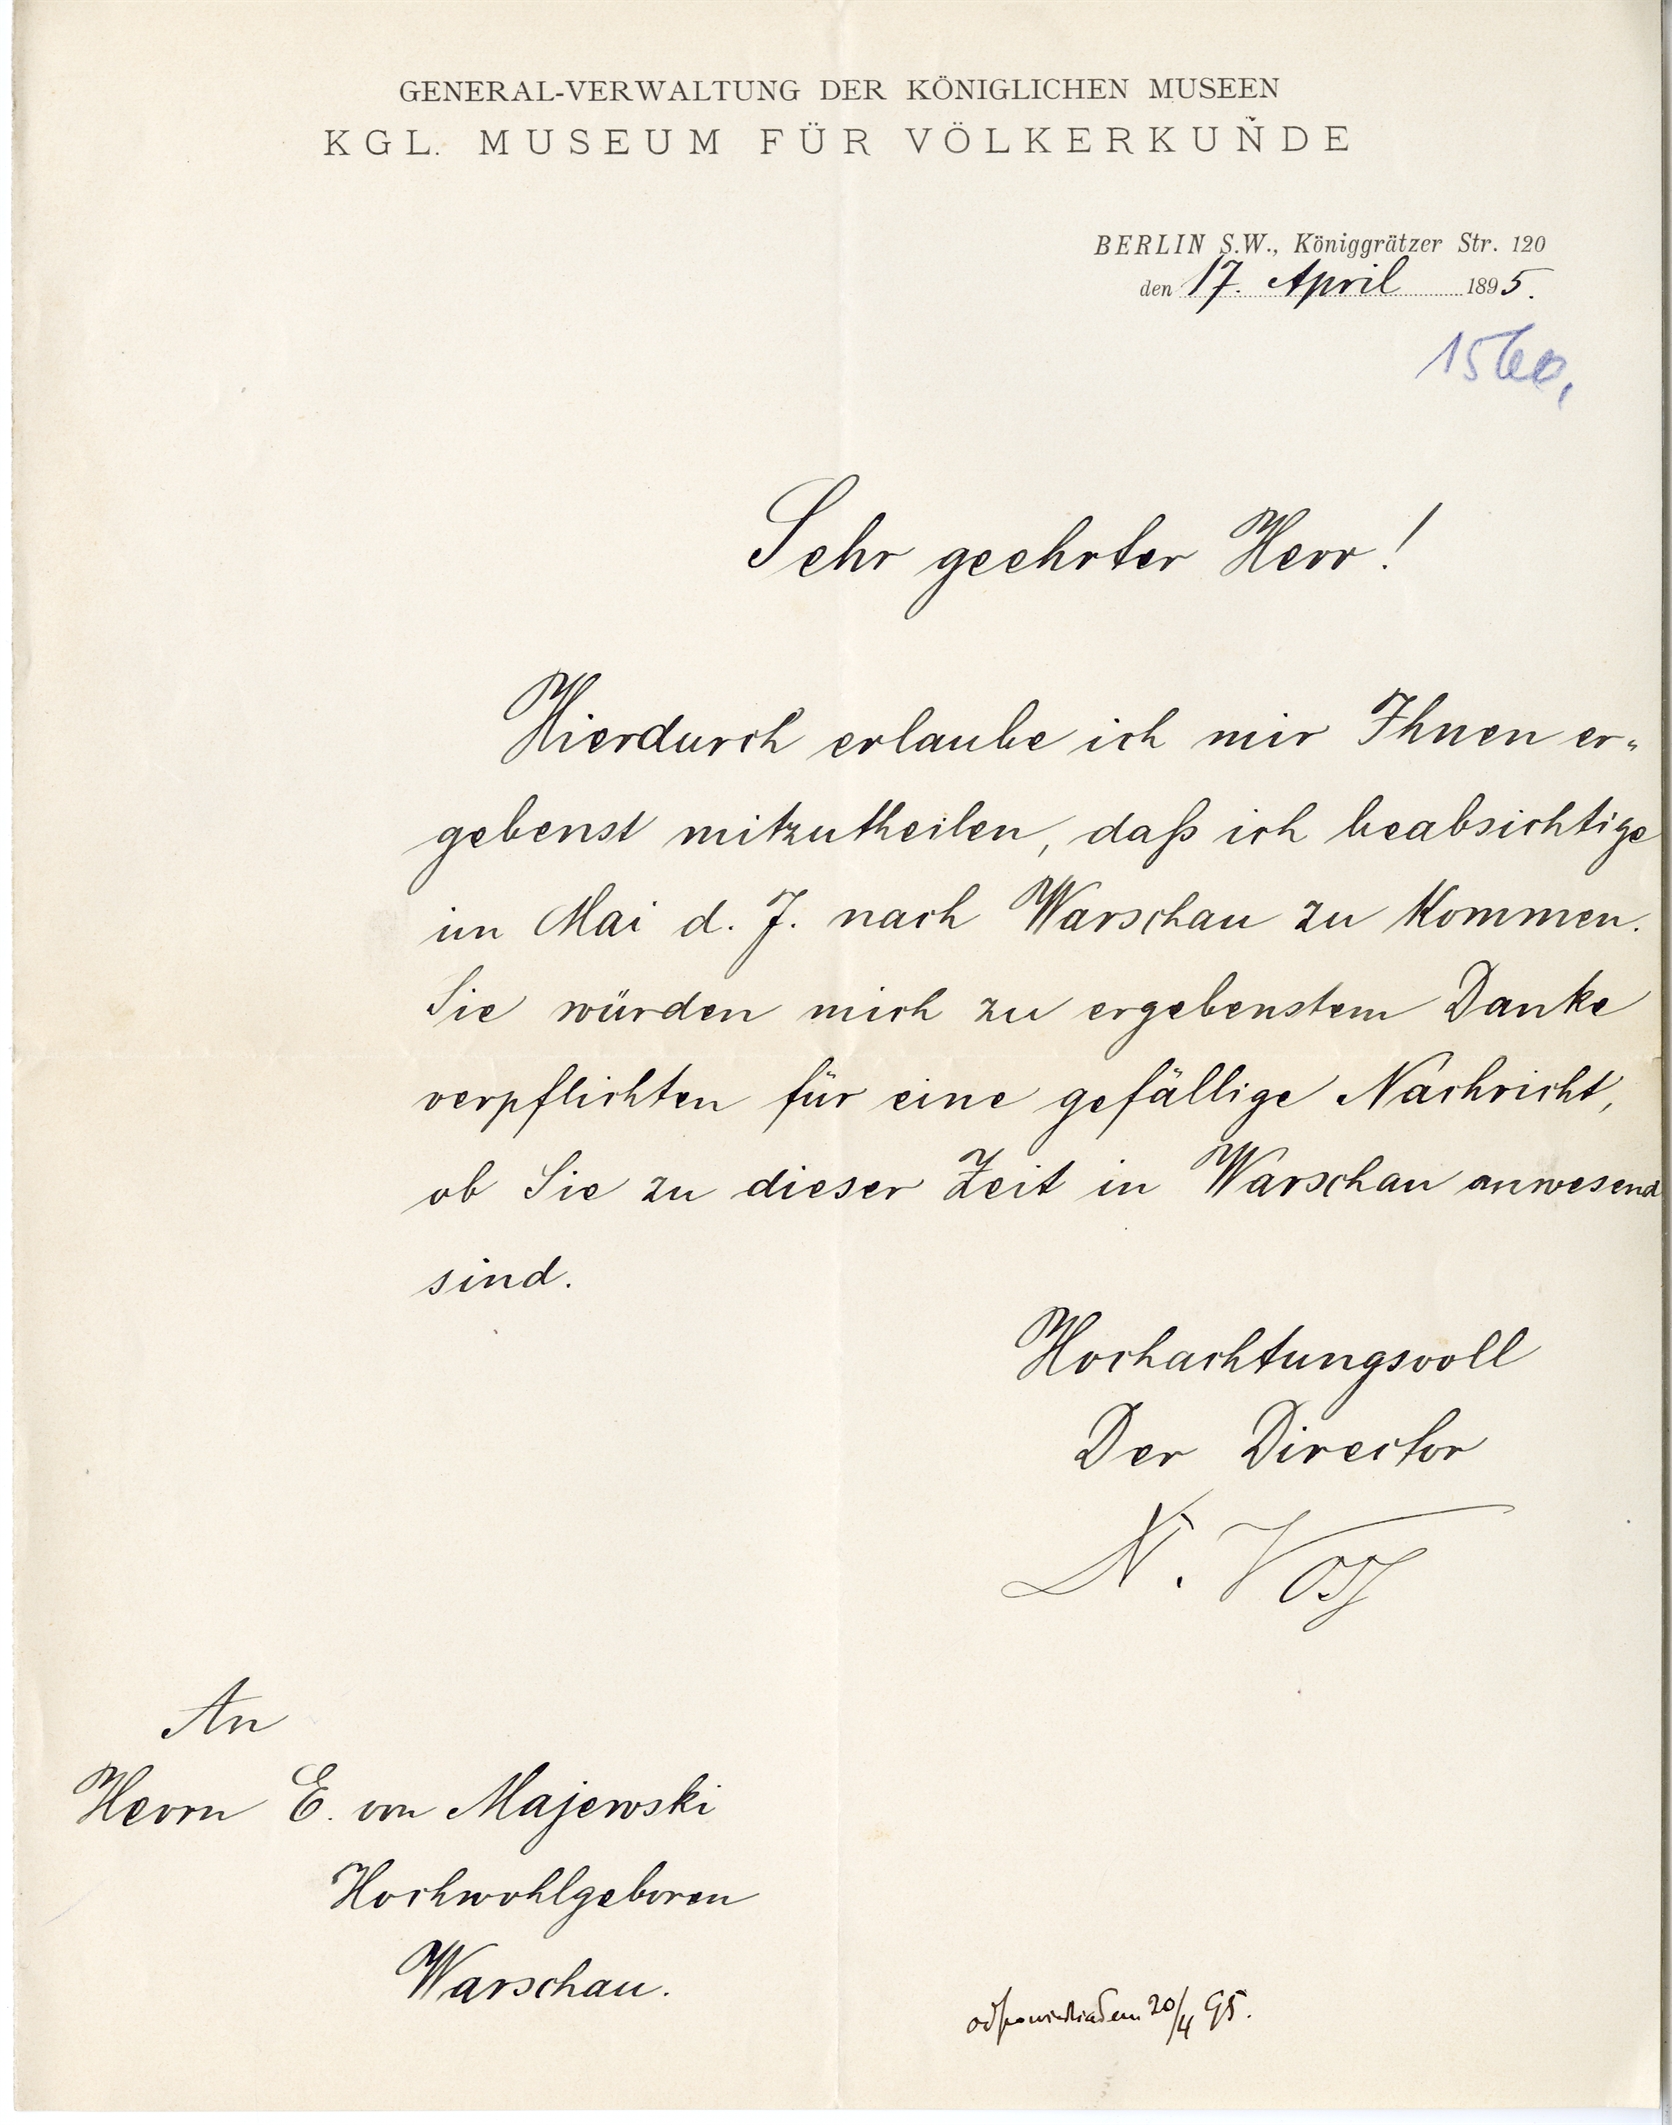 GENERAL-VERWALTUNG DER KÖNIGLICHEN MUSEEN
KGL. MUSEUM FÜR VÖLKERKUNDE
BERLIN S.W., Königgrätzer Str. 120
den 17. April 1895.
1560,
Sehr geehrter Herr!
Hierdurch erlaube ich mir Ihnen er-
gebenst mitzutheilen, daß ich beabsichtige
im Mai d. J. nach Warschau zu kommen.
Sie würden mich zu ergebenstem Danke
verpflichten für eine gefällige Nachricht,
ob Sie zu dieser Zeit in Warschau anwesend
sind.
Hochachtungsvoll
Der Director
A. Voss
An
Herrn E. von Majewski
Hochwohlgeboren
Warschau.
odpowiedziałem 20/4 95.